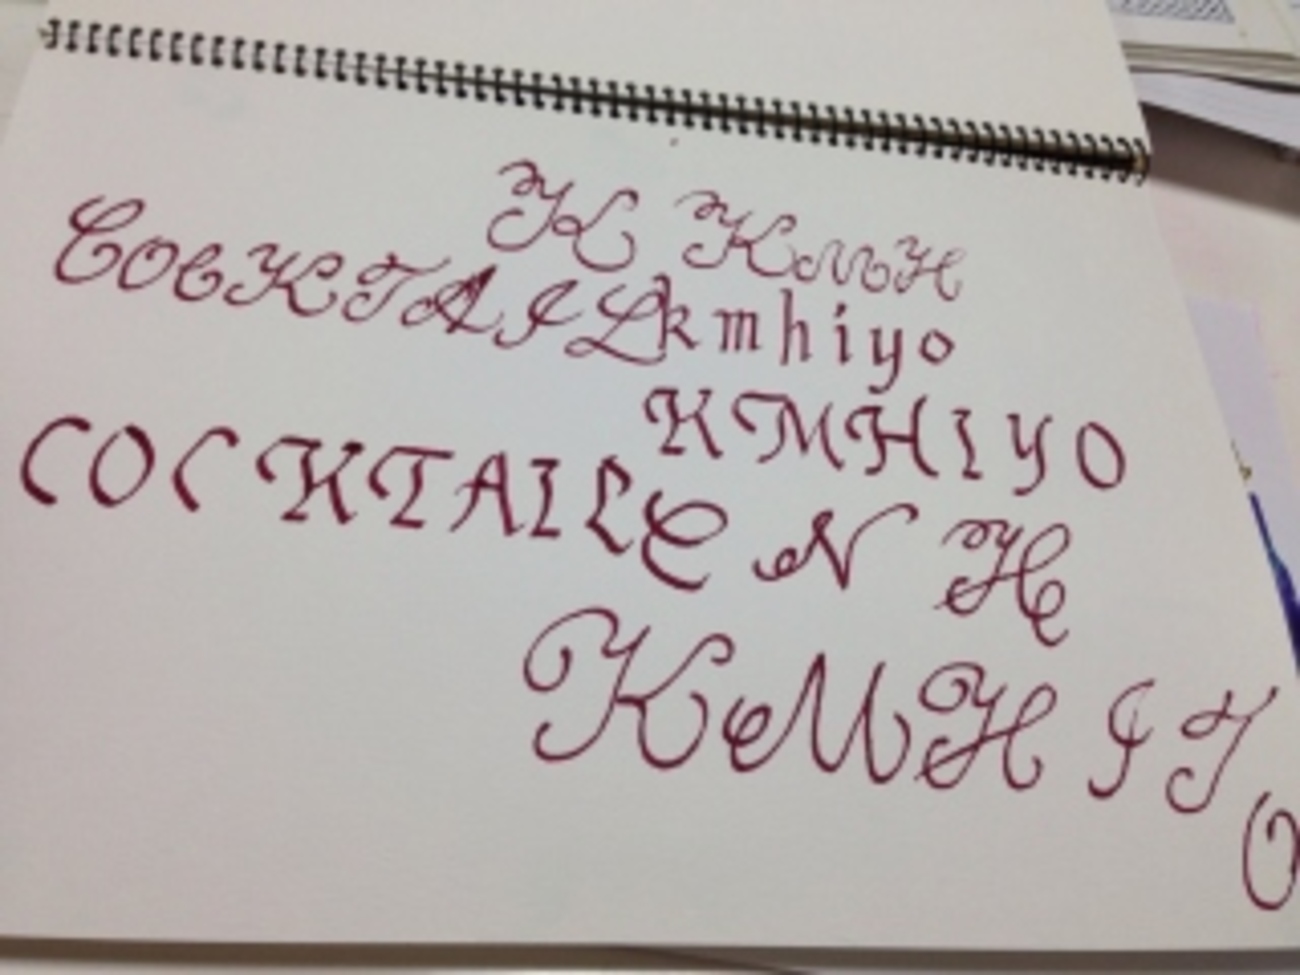 K KMH
COCKTAIL kmhiyo
KMHIYO
COCKTAIL C N H
KMH I Y O